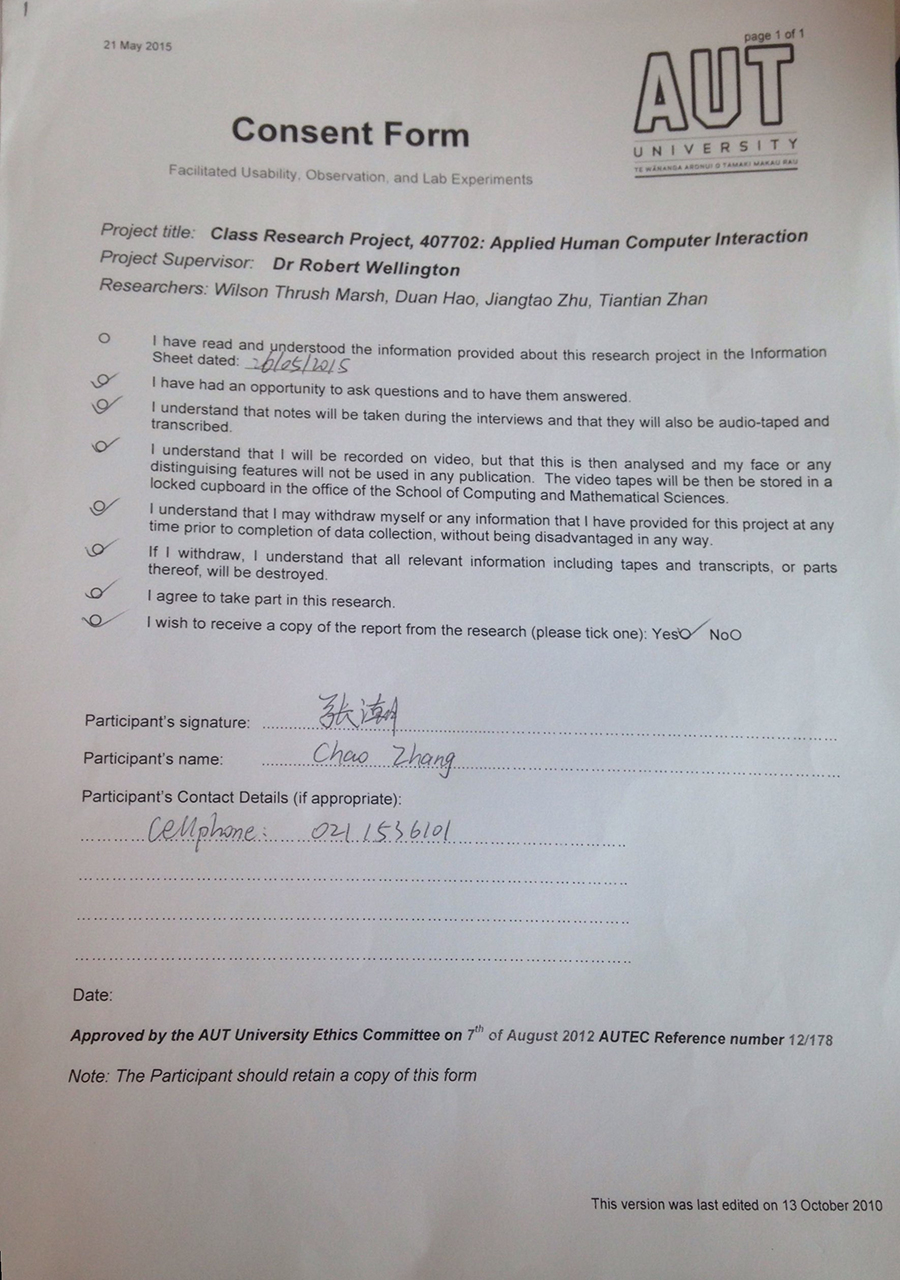 21 May 2015
page 1 of 1
AUT
UNIVERSITY
TE WĀNANGA ARONUI O TĀMAKI MAKAU RAU
Consent Form
Facilitated Usability, Observation, and Lab Experiments
Project title: Class Research Project, 407702: Applied Human Computer Interaction
Project Supervisor: Dr Robert Wellington
Researchers: Wilson Thrush Marsh, Duan Hao, Jiangtao Zhu, Tiantian Zhan
I have read and understood the information provided about this research project in the Information
Sheet dated: 26/05/2015
I have had an opportunity to ask questions and to have them answered.
I understand that notes will be taken during the interviews and that they will also be audio-taped and
transcribed.
I understand that I will be recorded on video, but that this is then analysed and my face or any
distinguising features will not be used in any publication. The video tapes will be then be stored in a
locked cupboard in the office of the School of Computing and Mathematical Sciences.
I understand that I may withdraw myself or any information that I have provided for this project at any
time prior to completion of data collection, without being disadvantaged in any way.
If I withdraw, I understand that all relevant information including tapes and transcripts, or parts
thereof, will be destroyed.
I agree to take part in this research.
I wish to receive a copy of the report from the research (please tick one): YesO NoO
Participant's signature: 张潮
Participant's name: Chao Zhang
Participant's Contact Details (if appropriate):
Cellphone: 021 1536101
Date:
Approved by the AUT University Ethics Committee on 7th of August 2012 AUTEC Reference number 12/178
Note: The Participant should retain a copy of this form
This version was last edited on 13 October 2010